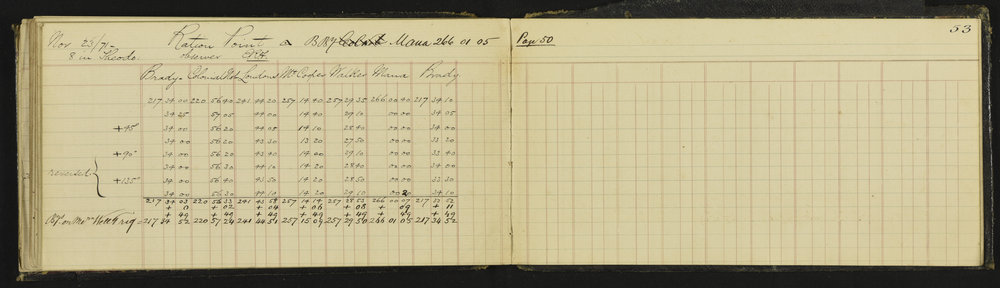 53
Nov 23/71- Ration Point △ BBy Cobart Mana 266 01 05 Page 50
8 in Theodo. observer
Brady Colonial Nob Loudons Mt Cooper Walker Mana Brady
217 34 00 220 56 40 241 44 20 257 14 40 257 29 35 266 00 40 217 34 10
34 25 57 05 44 00 14 40 29 10 00 00 34 05
+45° 34 00 56 20 44 05 14 10 28 40 00 00 33 20
34 00 56 20 43 40 13 20 27 50 00 00 33 20
+90° 34 00 56 20 43 40 14 00 29 10 00 00 33 40
34 00 56 30 44 10 14 20 28 40 00 00 34 00
reversed +135° 34 00 56 20 43 50 14 20 28 50 00 00 33 30
34 00 56 30 44 10 14 20 29 10 00 20 34 10
217 34 03 220 56 33 241 43 58 257 14 14 257 28 53 266 00 07 217 33 52
+ 0 + 02 + 04 + 06 + 08 + 09 + 11
+ 49 + 49 + 49 + 49 + 49 + 49 + 49
Trig = 217 34 52 220 57 24 241 44 51 257 15 09 257 29 50 266 01 05 217 34 52